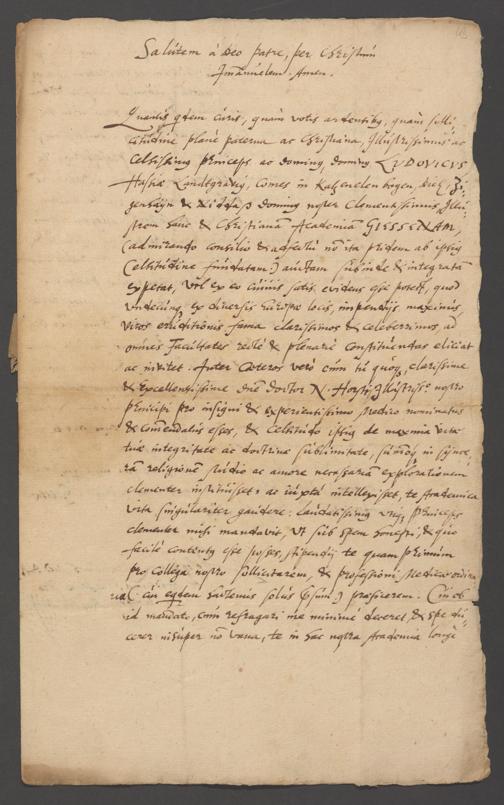 Salutem à Deo patre, per Christum
Immanuelem. Amen.
Quantis qdem curis, quàm votis ardentibq, quàm solli¬
citudine planè paterna ac Christiana, Illustrissimus ac
Celsissimq Princeps ac dominq, dominq LVDOVICVS
Hassiæ Landtgraviq, Comes in Katzenelenbogen, Dietz, Zi¬
genhayn & Nidda, dominq noster Clementissimus Illu¬
strem hanc & Christianam Academiam GIESSENAM,
(admirando consilio & adfectu nō ita pridem ab ipsiq
Celsitudine fundatam:) auctam subinde & integratā
expetat, vel ex eo cuivis satis evidens esse potest, quod
undecunq, ex diversis locis, impendijs maximis
viros eruditionis fama clarissimos & celeberrimos ad
omnes facultates rectè & plenariè constituendas eliciat
ac invitet. Inter cæteros verò cùm tu quoq, clarissime
& Excellentissime Dne Doctor N. Horsti, Illustrisso nostro
Principi pro insigni & experientissimo Medico nominatus
& commendatus esses, & Celsitudo ipsiq de maxima vitæ
tuæ integritate ac doctrinæ sublimitate, in synce¬
rā religionem studio ac amore necessariam explorationem
clementer instituisset, ac iuxtà intellexisset, te Academica
vita singulariter gaudere: laudatissimq Princeps
clementer mihi mandavit, ut sub spem honesti, & quo
facilè contentq esse posses, stipendij te quam primùm
pro Collega nostro sollicitarem, & professioni Medicæ ordina
riæ (cui eqdem hactenus solus ipsum) præficerem. Cui ob
id mandato, cùm refragari me minimè deceret, & spe du¬
cerer insuper nō vana, te in hac nostra Academia longè